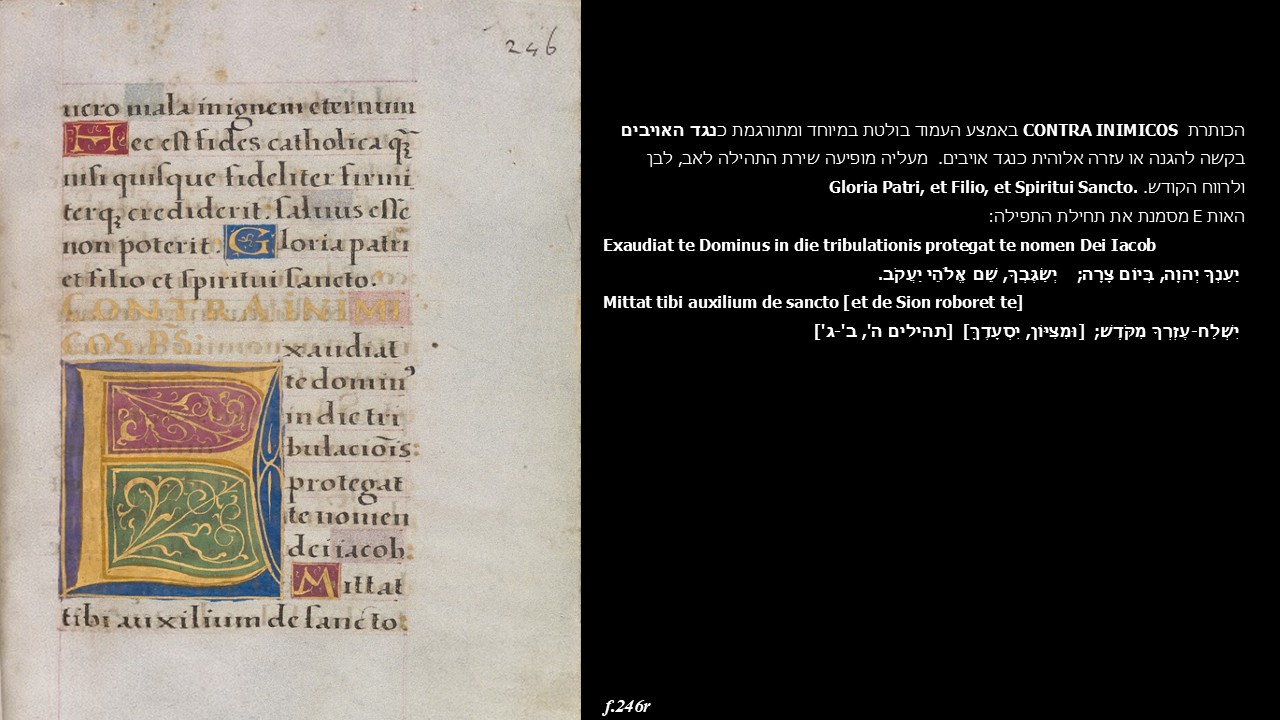 246
uero mala in ignem eternum
Hec est fides catholica q̃ꝫ
nisi quisque fideliter firmi
terqꝫ crediderit: saluus esse
non poterit. Gloria patri
et filio et spiritui sancto.
CONTRA INIMI
COS. PS̃
Exaudiat
te dominꝰ
in die tri
bulacioīs:
protegat
te nomen
dei iacob:
Mittat
tibi auxilium de sancto:
הכותרת CONTRA INIMICOS באמצע העמוד בולטת במיוחד ומתורגמת כנגד האויבים
בקשה להגנה או עזרה אלוהית כנגד אויבים. מעליה מופיעה שירת התהילה לאב, לבן
ולרווח הקודש. Gloria Patri, et Filio, et Spiritui Sancto.
האות E מסמנת את תחילת התפילה:
Exaudiat te Dominus in die tribulationis protegat te nomen Dei Iacob
יַעַנְךָ יְהוָה, בְּיוֹם צָרָה; יְשַׂגֶּבְךָ, שֵׁם אֱלֹהֵי יַעֲקֹב.
Mittat tibi auxilium de sancto [et de Sion roboret te]
יִשְׁלַח-עֶזְרְךָ מִקֹּדֶשׁ; [וּמִצִּיּוֹן, יִסְעָדֶךָּ] [תהילים ה', ב'-ג']
f.246r